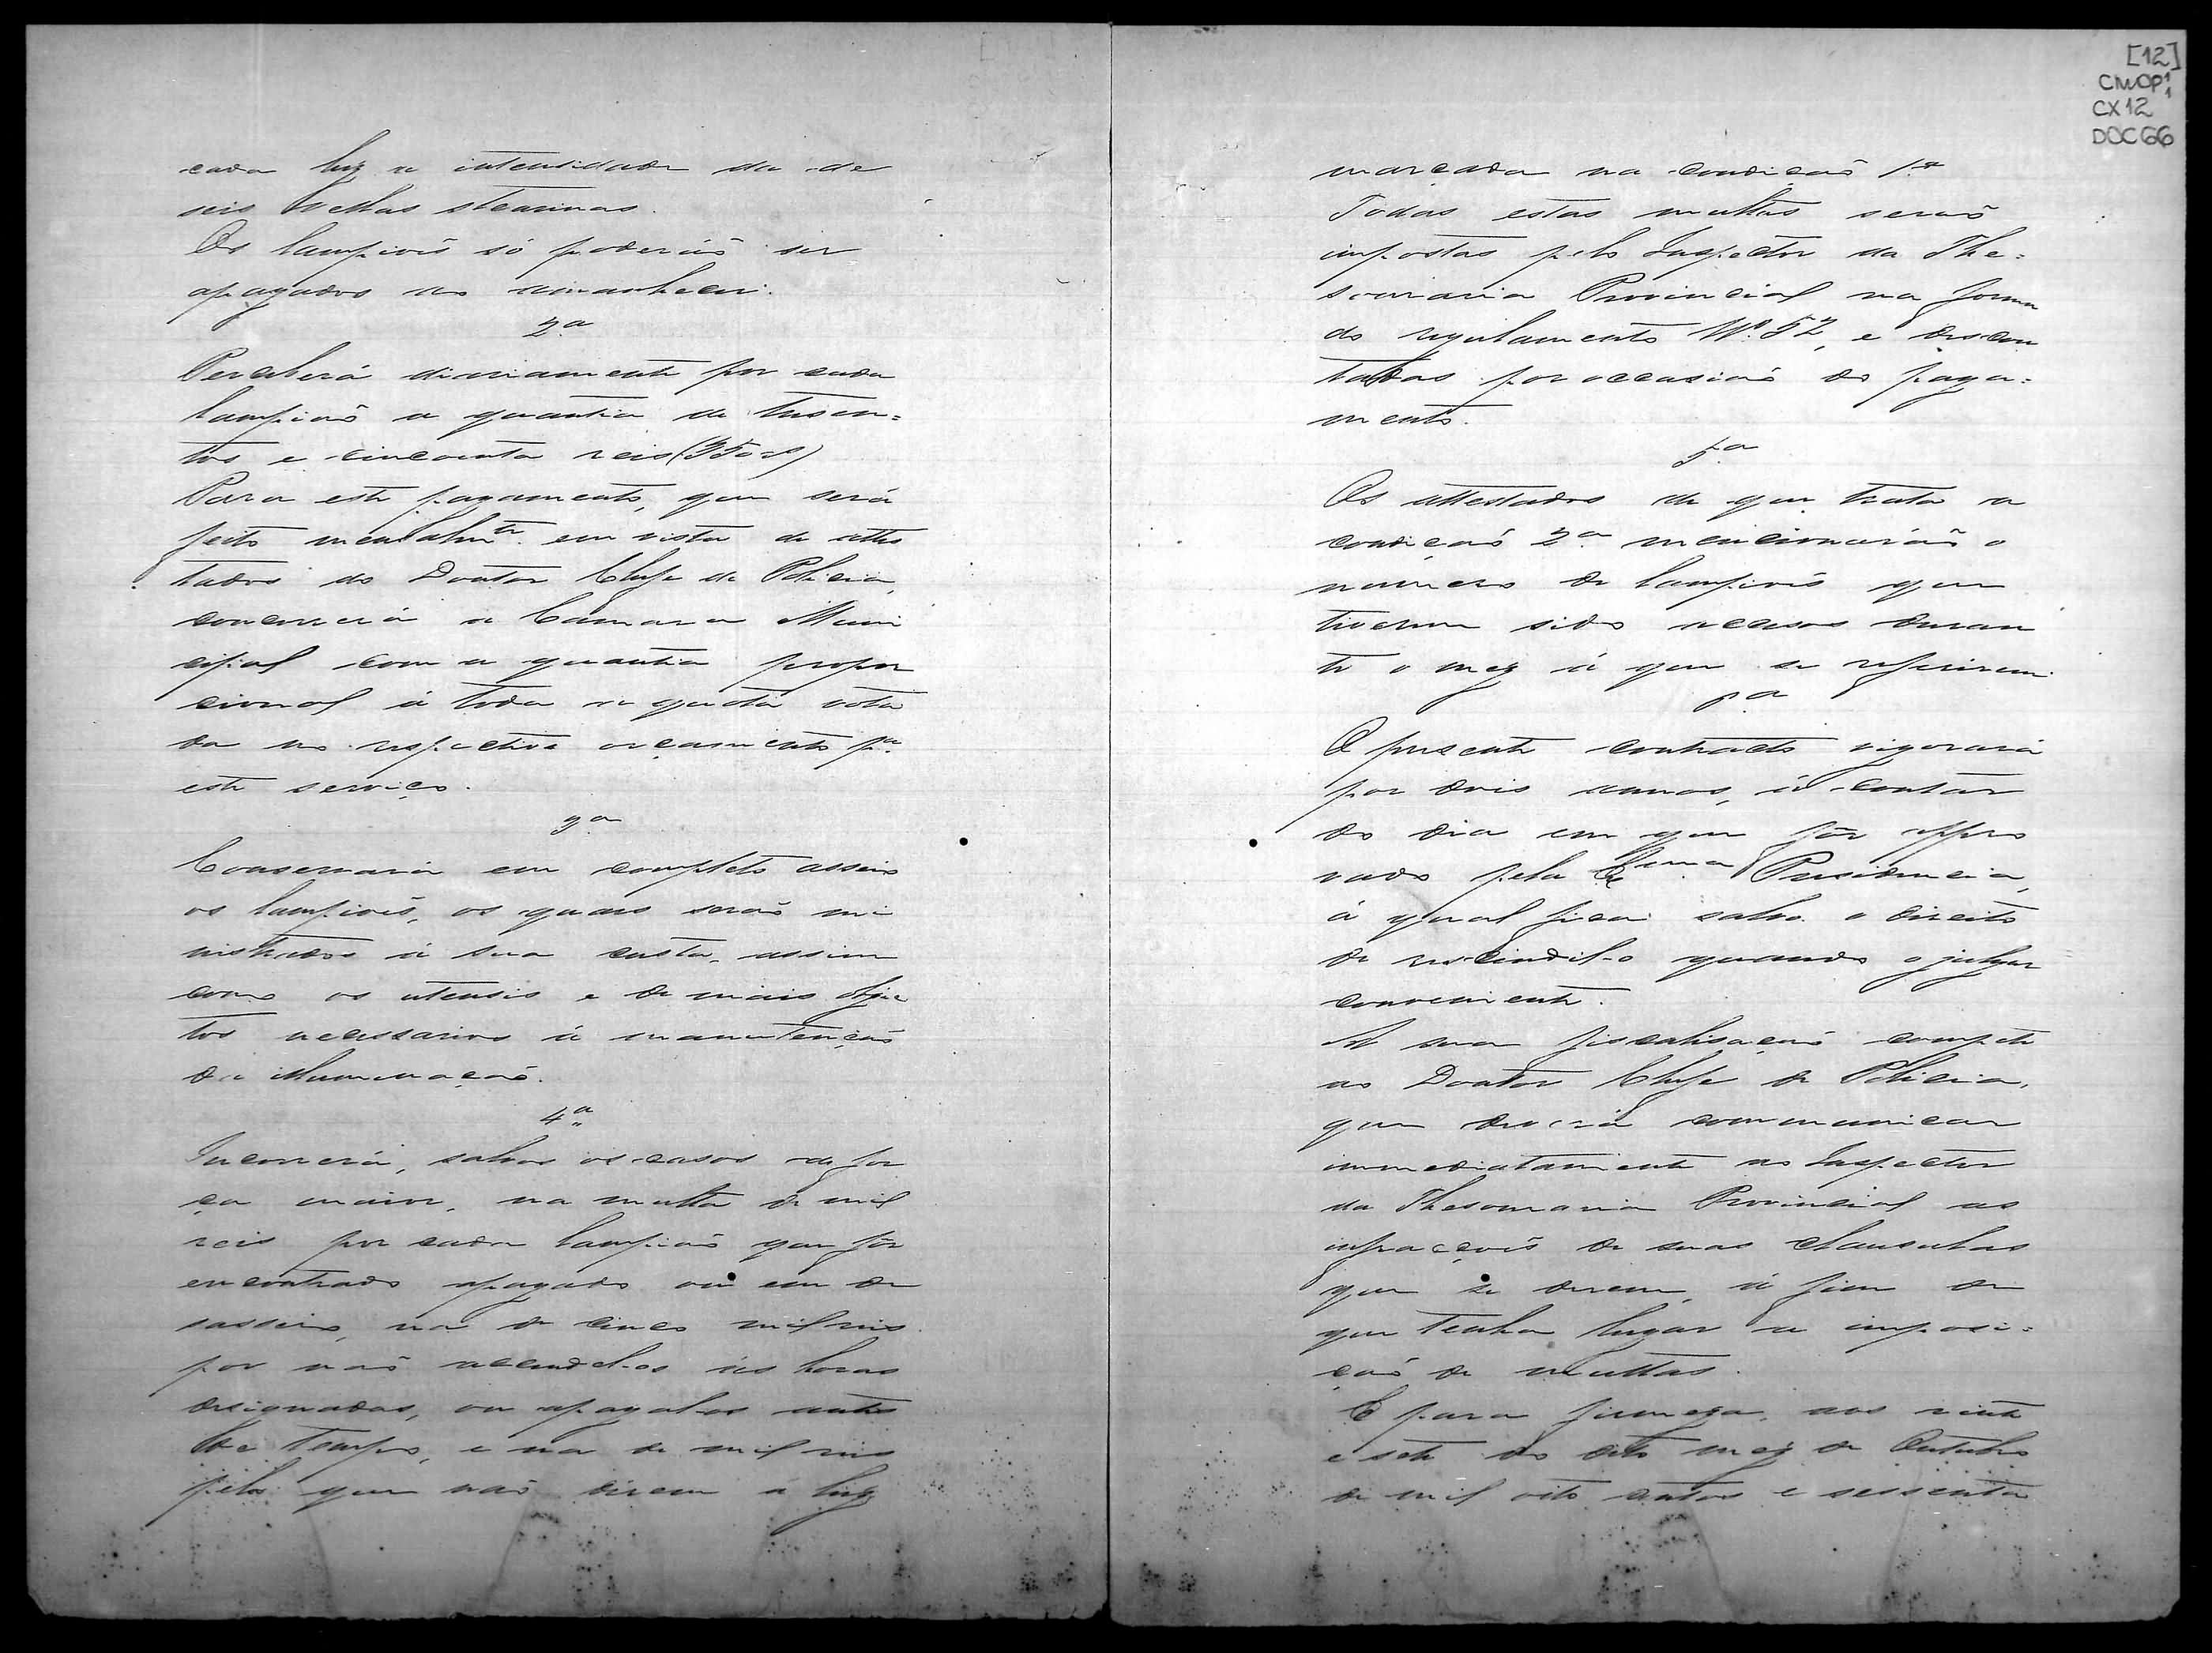 cada luz a intensidade da de
seis vellas stearinas.
Os lampioẽs só poderáõ ser
apagados ao amanhecer.
2.a
Perceberá diariamente por cada
lampiaõ a quantia de tresen=
tos e cincoenta reis (350 rs)
Para este pagamento, que será
feito mensalm.te em vista de attes
tados do Doutor Chefe de Policia,
concorrerá a Camara Muni
cipal com a quantia propor
cional á toda a quota vota
da no respectivo orçamento p.a
este serviço.
3.a
Conservará em completo asseio
os lampioẽs, os quaes seraõ mi
nistrados á sua custa, assim
como os utensis e de mais objec
tos necessarios á manutençaõ
da illuminaçaõ.
4.a
Incorrerá, salvos os casos de for
ça maior, na multa de mil
reis por cada lampiaõ que fôr
encontrado apagado ou em de
sasseio, na de cinco mil reis
por naõ accendel-os ás horas
designadas, ou apagal-os antes
de tempo, e na de mil reis
pelos que naõ derem a luz
[12]
CMOP 1
1
CX12
DOC 66
marcada na condiçaõ 1.a
Todas estas multas seraõ
impostas pelo Inspector da The=
souraria Provincial na forma
do regulamento N.o 52, e descon
tadas por occasiaõ do paga=
mento.
5.a
Os attestados de que trata a
condiçaõ 2.a mencionaráõ o
numero de lampioẽs que
tiverem sido accesos duran
te o mez á que se referirem.
6.a
O presente contracto vigorará
por dois annos, á contar
do dia em que fôr appro
vado pela Ex.ma Presidencia,
á qual fica salvo o direito
de rescindil-o quando o julgar
conveniente.
A sua fiscalisaçaõ compete
ao Doutor Chefe de Policia,
que deverá communicar
immediatamente ao Inspector
da Thesouraria Provincial as
infracçoẽs de suas clausulas
que se derem, á fim de
que tenha lugar a imposi=
çaõ de multas.
E para firmeza, aos vinte
e sete do dito mez de Outubro
de mil oito centos e sessenta